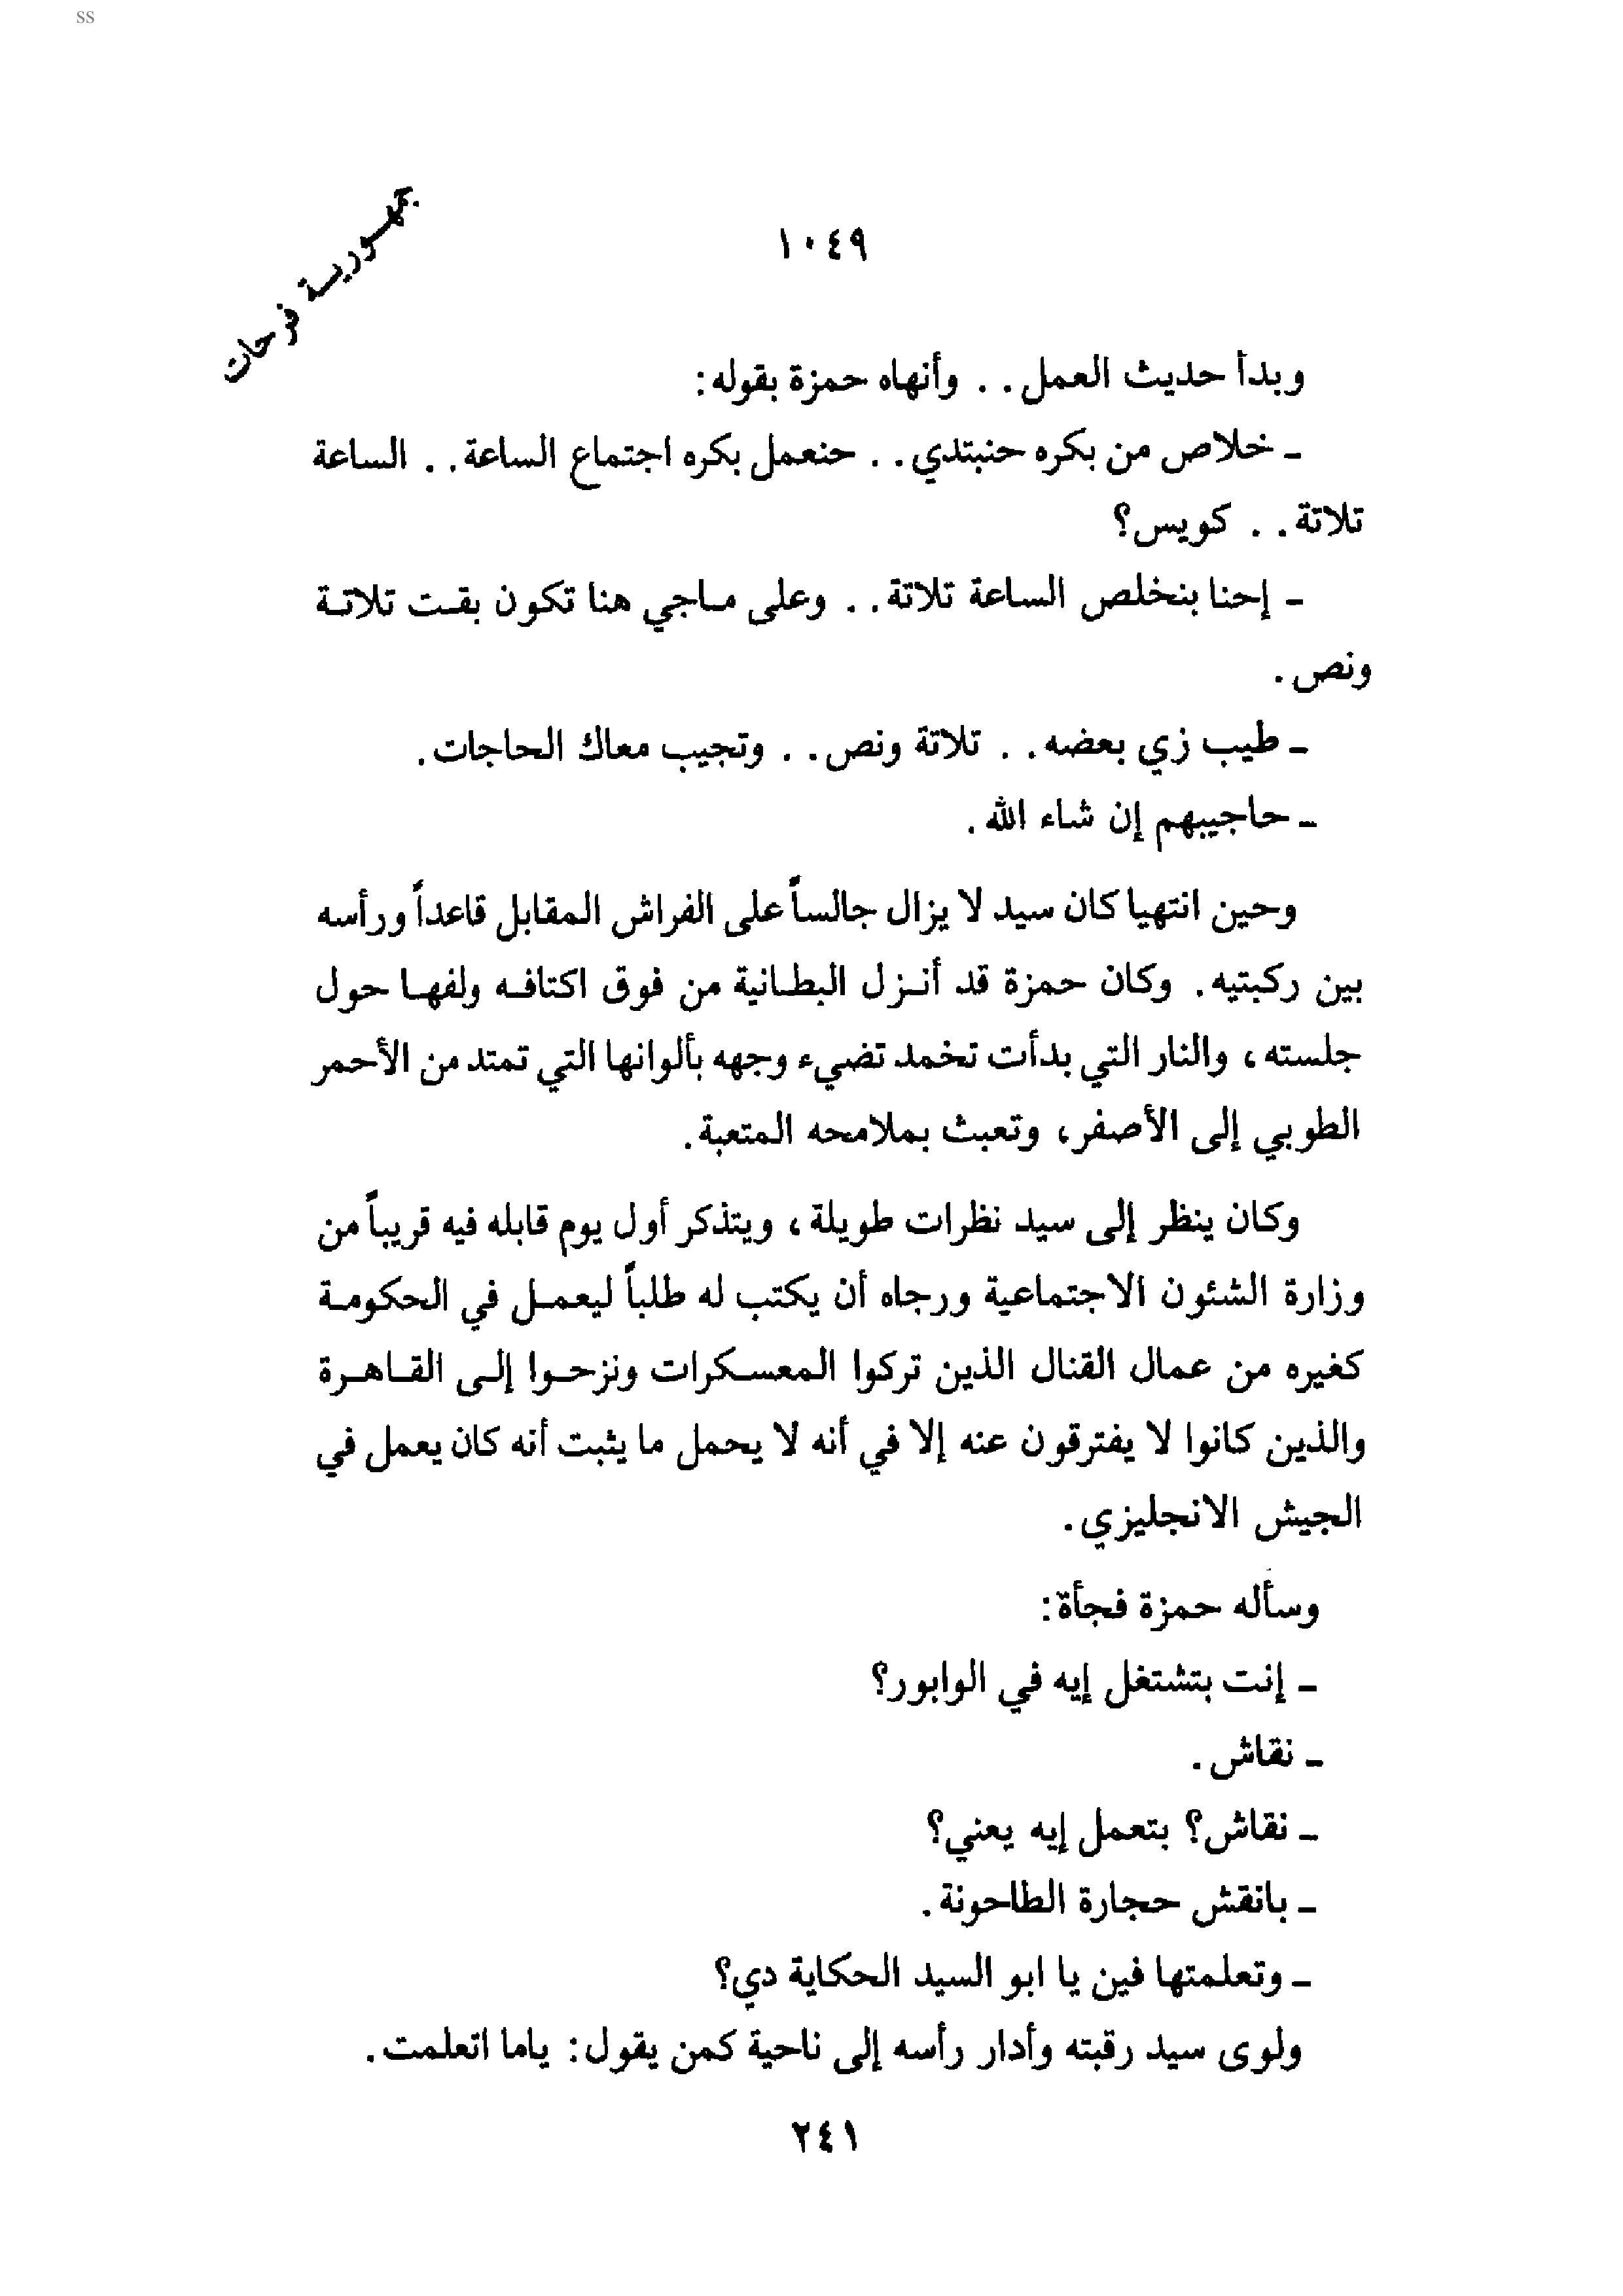 ss
جمهورية فرحات
١٠٤٩
وبدأ حديث العمل . . وأنهاه حمزة بقوله:
ـ خلاص من بكره حنبتدي . . حنعمل بكره اجتماع الساعة . . الساعة
تلاتة . . كويس؟
ـ إحنا بنخلص الساعة تلاتة . . وعلى ماجي هنا تكون بقت تلاتة
ونص .
ـ طيب زي بعضه . . تلاتة ونص . . وتجيب معاك الحاجات .
ـ حاجيبهم إن شاء الله .
وحين انتهيا كان سيد لا يزال جالساً على الفراش المقابل قاعداً ورأسه
بين ركبتيه . وكان حمزة قد أنزل البطانية من فوق اكتافه ولفها حول
جلسته ، والنار التي بدأت تخمد تضيء وجهه بألوانها التي تمتد من الأحمر
الطوبي إلى الأصفر، وتعبث بملامحه المتعبة .
وكان ينظر إلى سيد نظرات طويلة ، ويتذكر أول يوم قابله فيه قريباً من
وزارة الشئون الاجتماعية ورجاه أن يكتب له طلباً ليعمل في الحكومة
كغيره من عمال القنال الذين تركوا المعسكرات ونزحوا إلى القاهرة
والذين كانوا لا يفترقون عنه إلا في أنه لا يحمل ما يثبت أنه كان يعمل في
الجيش الانجليزي .
وسأله حمزة فجأة:
ـ إنت بتشتغل إيه في الوابور؟
ـ نقاش .
ـ نقاش؟ بتعمل إيه يعني؟
ـ بانقش حجارة الطاحونة .
ـ وتعلمتها فين يا ابو السيد الحكاية دي؟
ولوى سيد رقبته وأدار رأسه إلى ناحية كمن يقول: ياما اتعلمت .
٢٤١